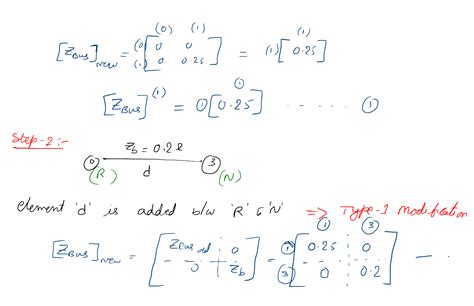 (0) (1)
[Z Bus]new = (0) (1) [0 0 0 0.25] = (1) [0.25] (1)
[Z Bus](1) = 0[0.25] (1) ------ ①
Step-2:-
Zb = 0.2
0 3
(R) d (N)
element 'd' is added b/w 'R' & 'N' => Type-1 modification
① ③
[Z Bus]new = [Z Bus old 0 0 Zb] = ① ③ [0.25 0 0 0.2] ---